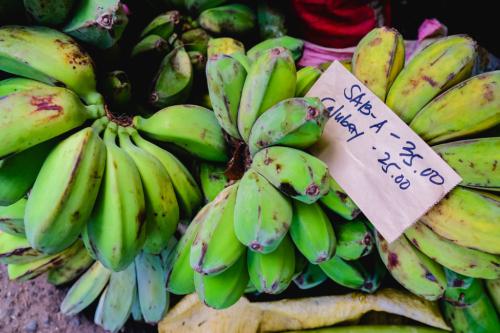 SAB-A - 35.00
Calubay - 25.00